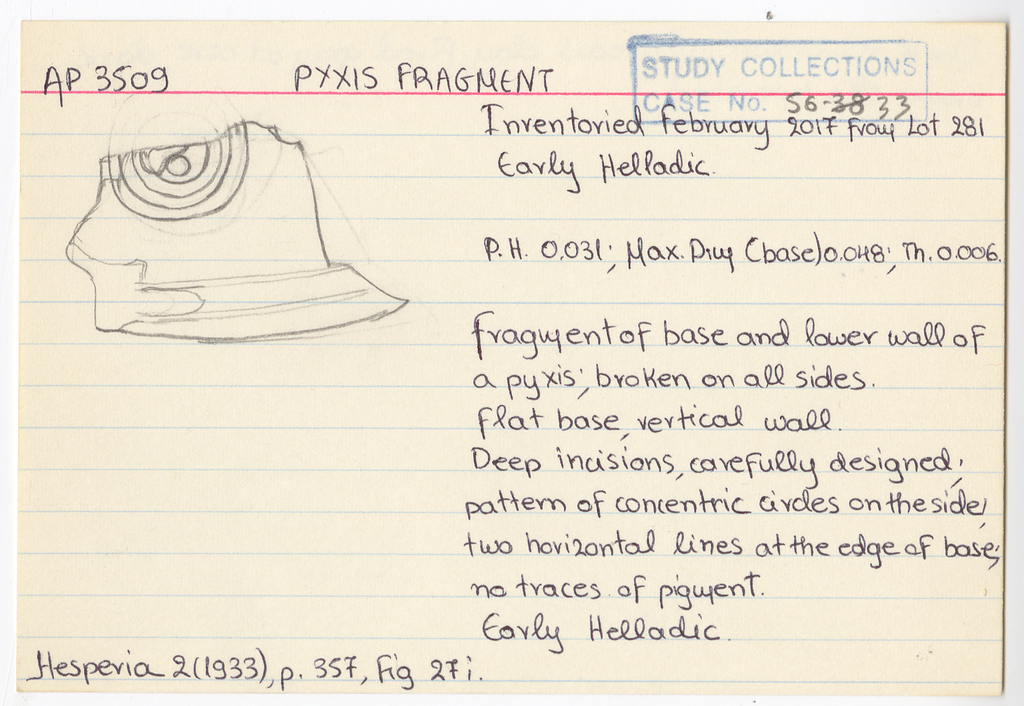 AP 3509 PYXIS FRAGMENT
STUDY COLLECTIONS
CASE No. 56-33
Inventoried February 2017 from Lot 281
Early Helladic.
P.H. 0.031; Max. Dim (base) 0.048; Th. 0.006.
Fragment of base and lower wall of
a pyxis; broken on all sides.
Flat base, vertical wall.
Deep incisions, carefully designed;
pattern of concentric circles on the side,
two horizontal lines at the edge of base;
no traces of pigment.
Early Helladic.
Hesperia 2 (1933), p. 357, Fig 27 i.